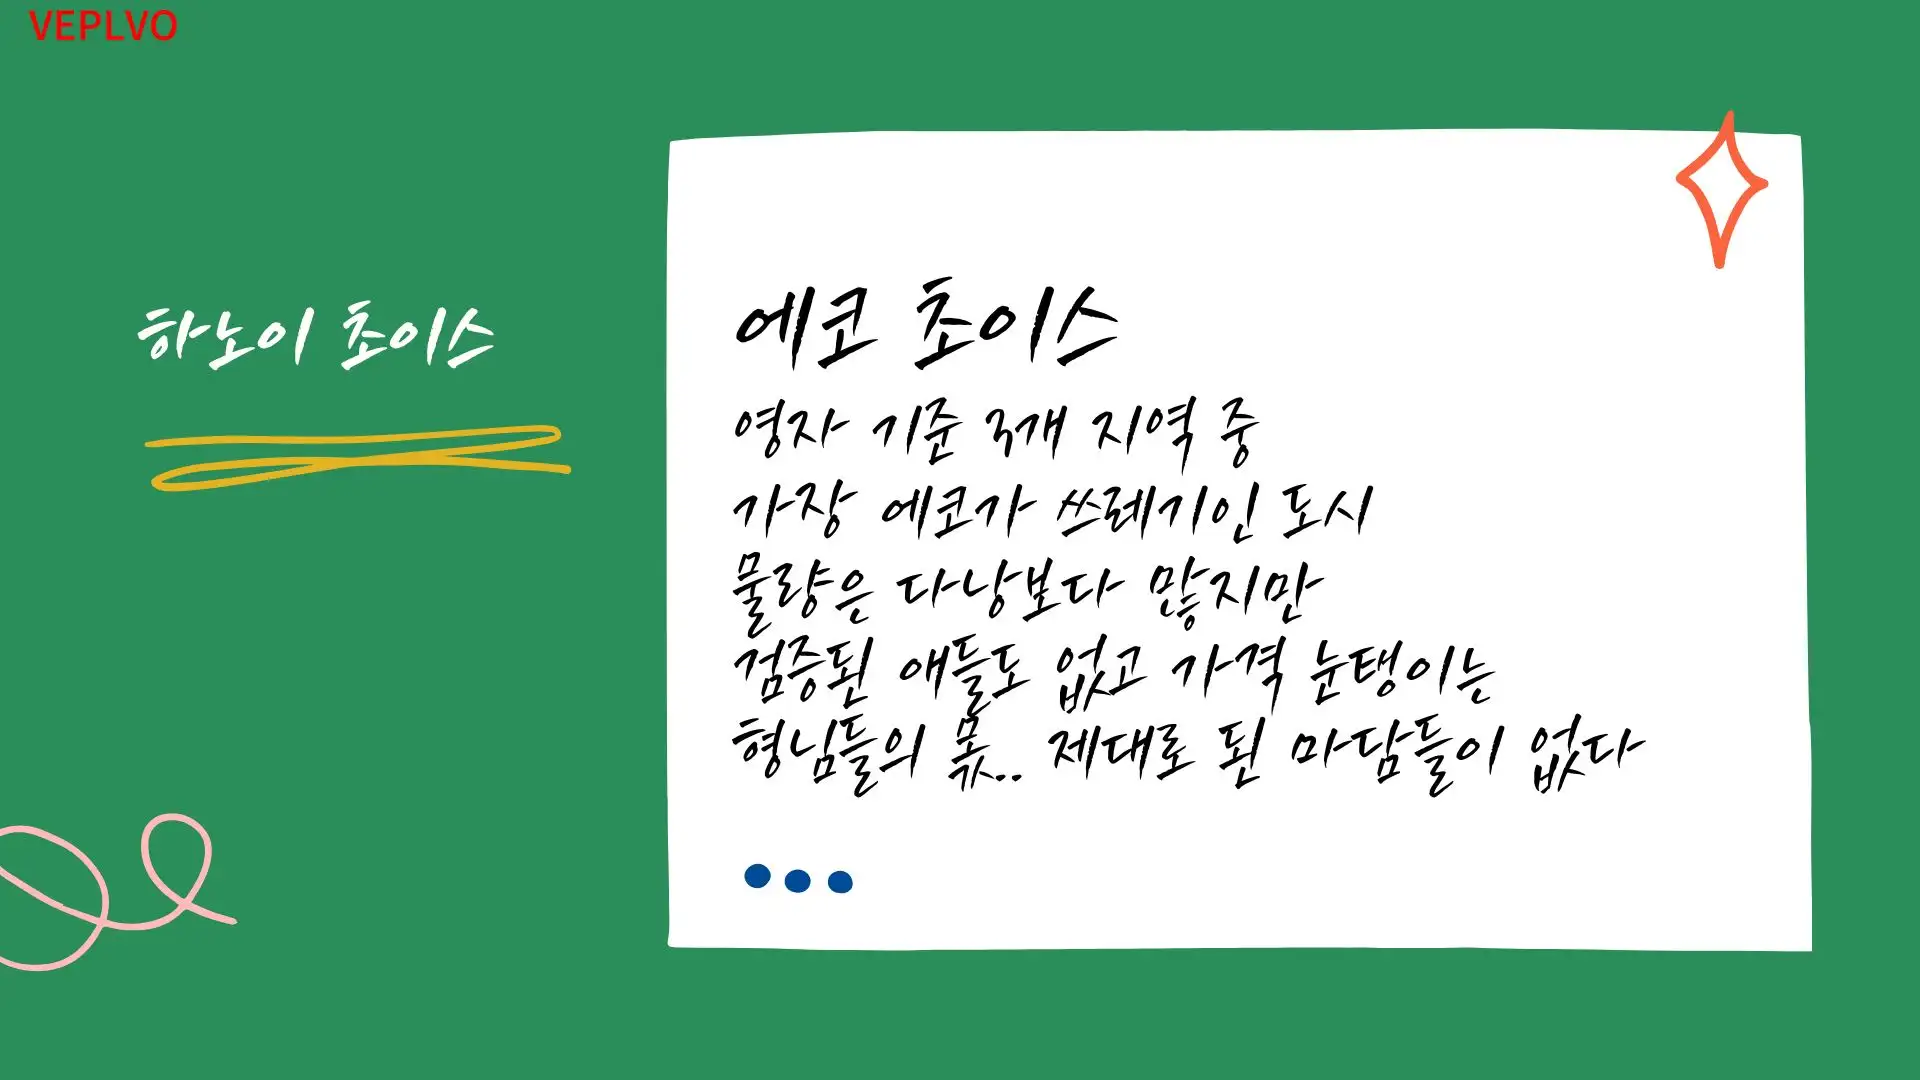 VEPLVO
하노이 초이스
에코 초이스
영자 기준 3개 지역 중
가장 에코가 쓰레기인 도시
물량은 다낭보다 많지만
검증된 애들도 없고 가격 눈탱이는
형님들의 몫.. 제대로 된 마담들이 없다